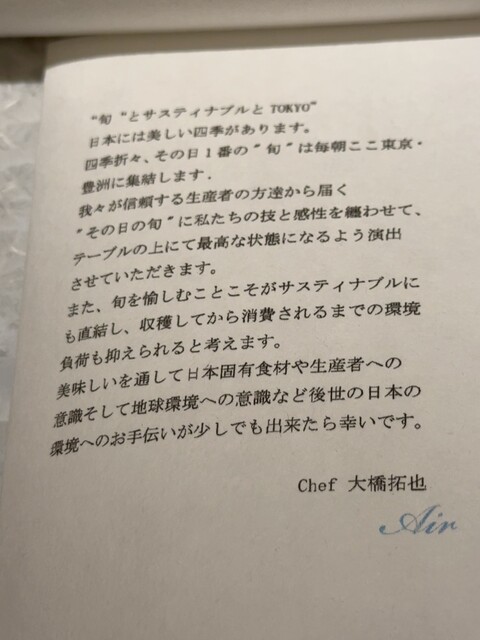 "旬"とサスティナブルとTOKYO"
日本には美しい四季があります。
四季折々、その日1番の"旬"は毎朝ここ東京・
豊洲に集結します.
我々が信頼する生産者の方達から届く
"その日の旬"に私たちの技と感性を纏わせて、
テーブルの上にて最高な状態になるよう演出
させていただきます。
また、旬を愉しむことこそがサスティナブルに
も直結し、収穫してから消費されるまでの環境
負荷も抑えられると考えます。
美味しいを通して日本固有食材や生産者への
意識そして地球環境への意識など後世の日本の
環境へのお手伝いが少しでも出来たら幸いです。
Chef 大橋拓也
Air